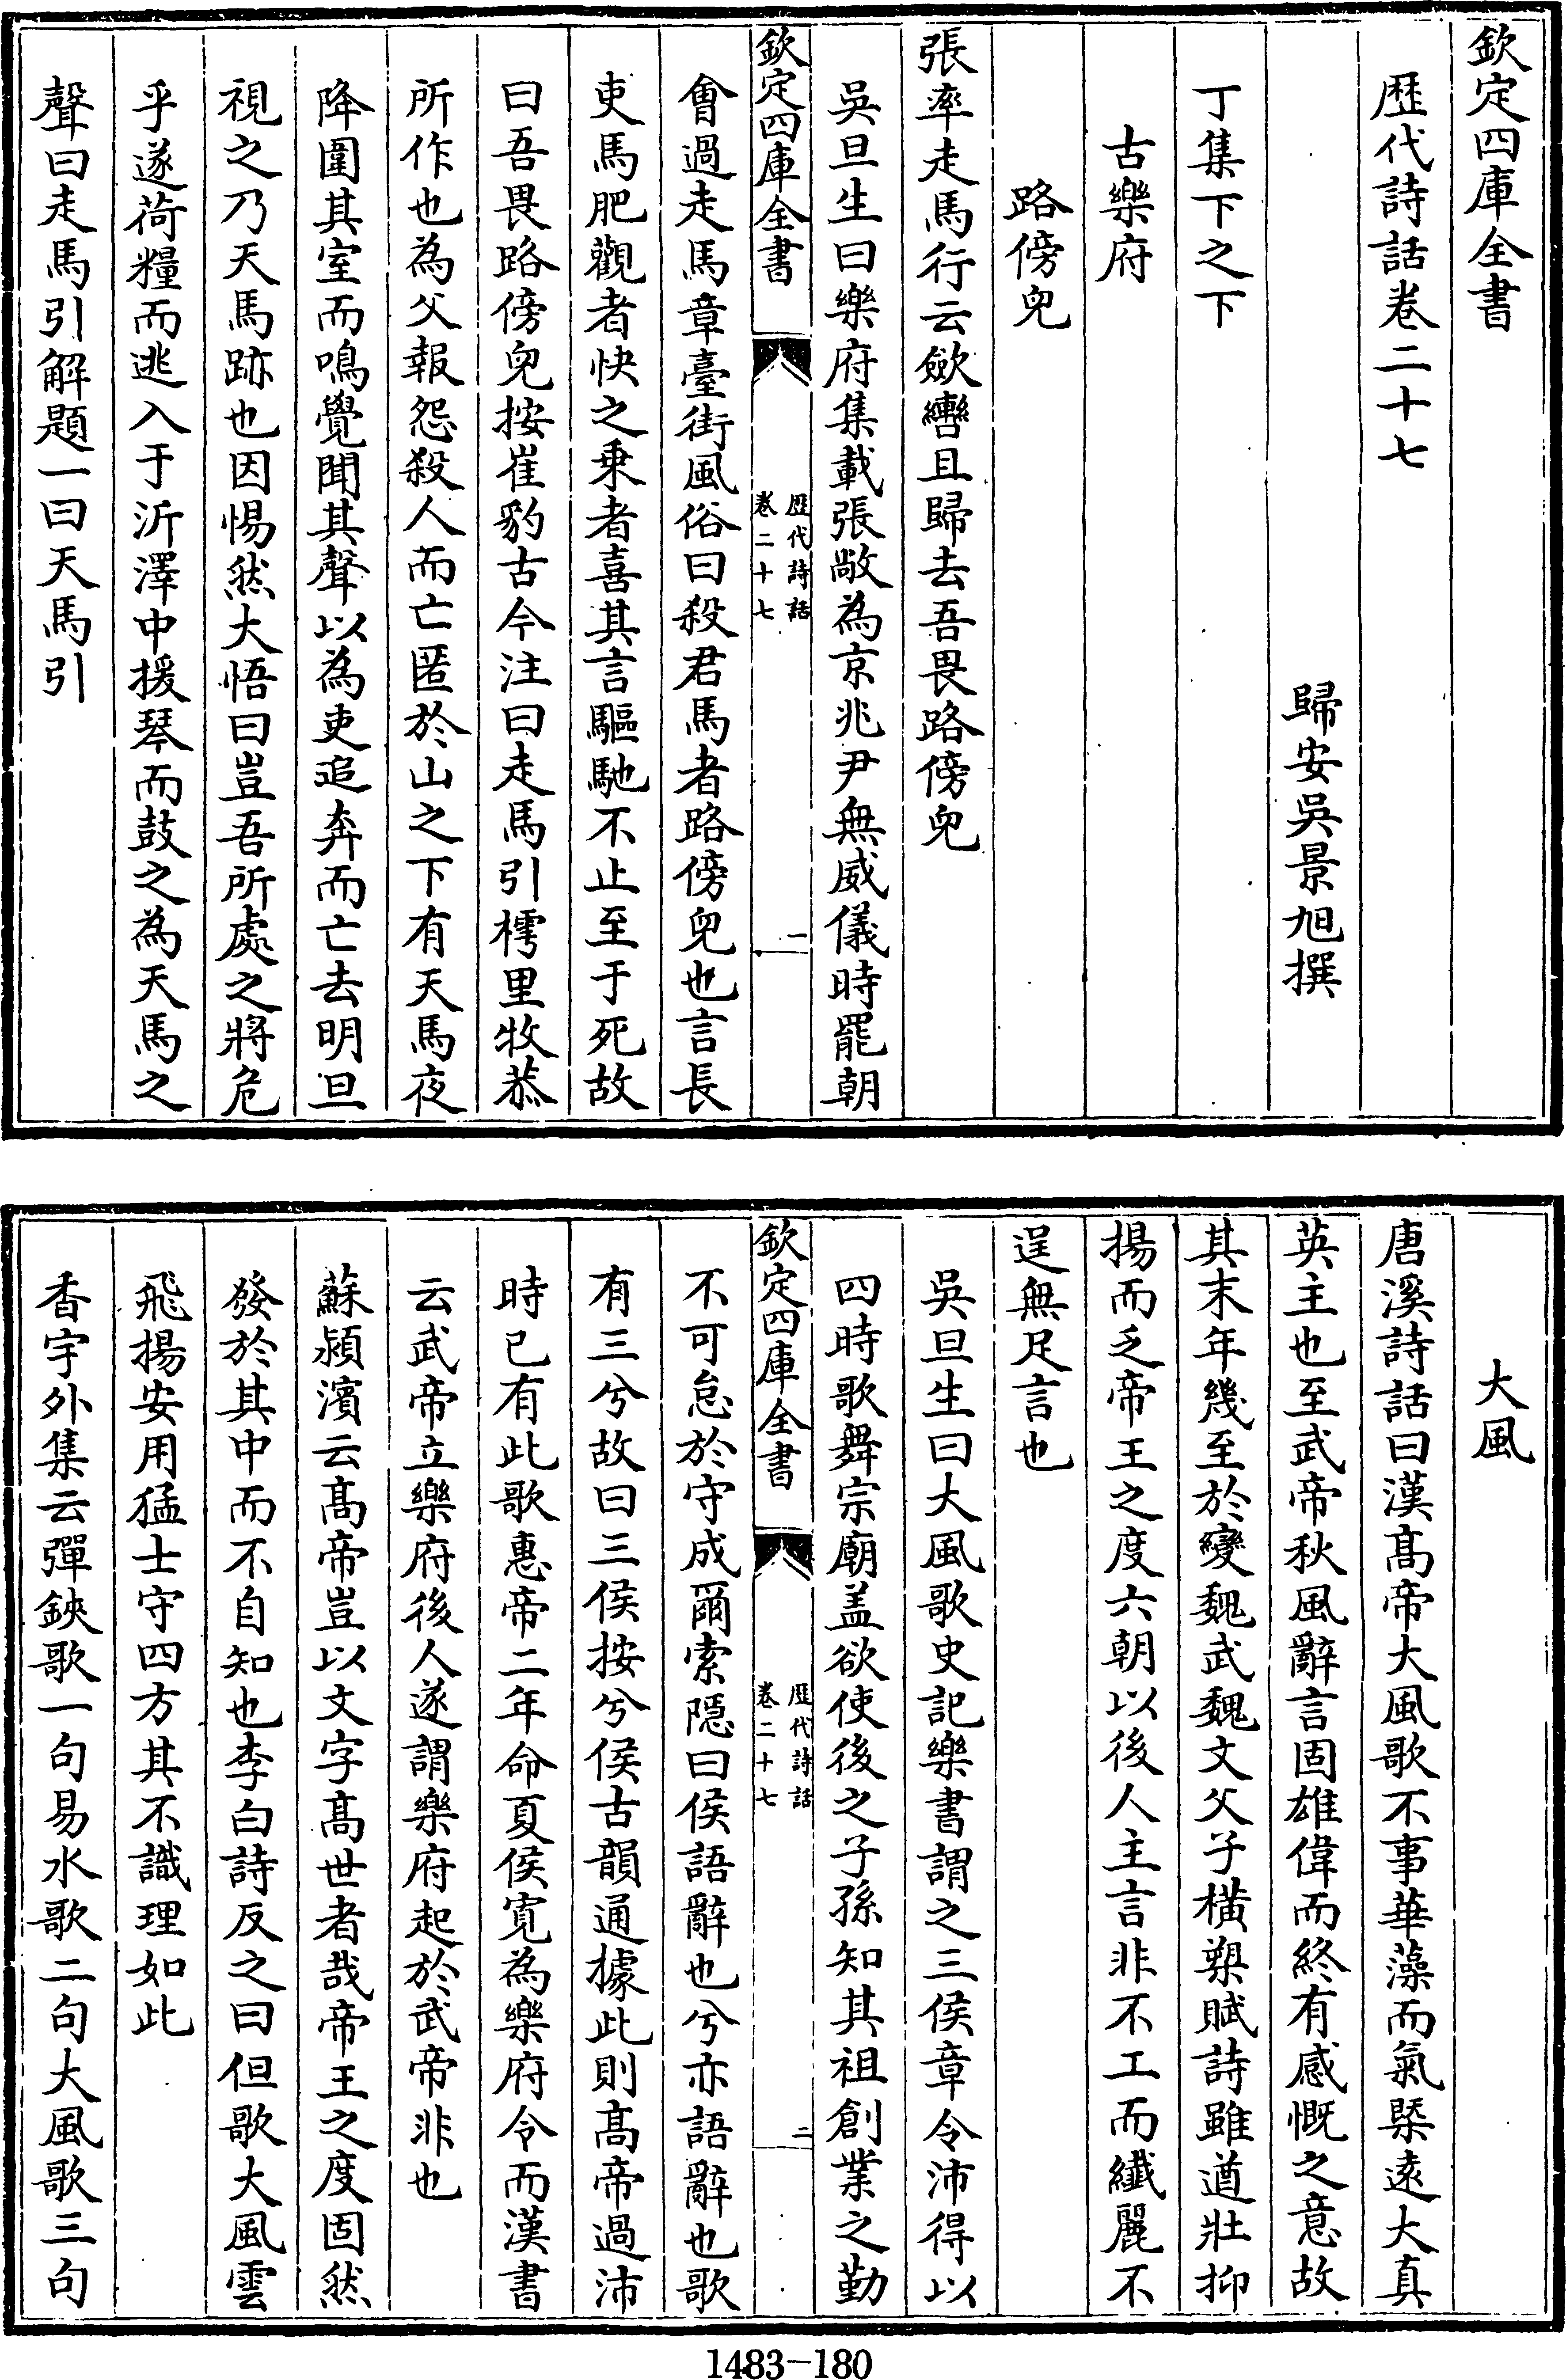 欽定四庫全書
歷代詩話卷二十七
歸安吳景旭撰
丁集下之下
古樂府
路傍兒
張率走馬行云歛轡且歸去吾畏路傍兒
吳旦生曰樂府集載張敞為京兆尹無威儀時罷朝
欽定四庫全書
歷代詩話
卷二十七
一
會過走馬章臺街風俗曰殺君馬者路傍兒也言長
吏馬肥觀者快之乗者喜其言驅馳不止至于死故
曰吾畏路傍兒按崔豹古今注曰走馬引樗里牧恭
所作也為父報怨殺人而亡匿於山之下有天馬夜
降圍其室而鳴覺聞其聲以為吏追奔而亡去明旦
視之乃天馬跡也因惕然大悟曰豈吾所處之將危
乎遂荷糧而逃入于沂澤中援琴而鼓之為天馬之
聲曰走馬引解題一曰天馬引
大風
唐溪詩話曰漢髙帝大風歌不事華藻而氣槩逺大真
英主也至武帝秋風辭言固雄偉而終有感慨之意故
其末年幾至於變魏武魏文父子橫槊賦詩雖遒壯抑
揚而乏帝王之度六朝以後人主言非不工而纖麗不
逞無足言也
吳旦生曰大風歌史記樂書謂之三侯章令沛得以
四時歌舞宗廟盖欲使後之子孫知其祖創業之勤
欽定四庫全書
歷代詩話
卷二十七
二
不可怠於守成爾索隠曰侯語辭也兮亦語辭也歌
有三兮故曰三侯按兮侯古韻通據此則髙帝過沛
時已有此歌惠帝二年命夏侯寛為樂府令而漢書
云武帝立樂府後人遂謂樂府起於武帝非也
蘇潁濱云髙帝豈以文字髙世者哉帝王之度固然
發於其中而不自知也李白詩反之曰但歌大風雲
飛揚安用猛士守四方其不識理如此
香宇外集云彈鋏歌一句易水歌二句大風歌三句
1483-180